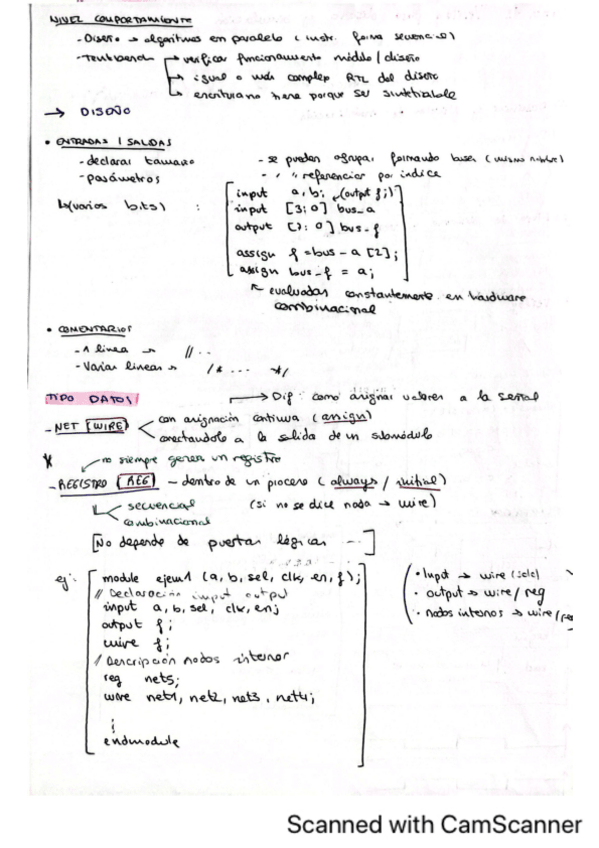 NIVEL COMPORTAMIENTO
- Diseño → algoritmos en paralelo (instr. forma secuencial)
- Testbench → verificar funcionamiento módulo / diseño
→ igual o más complejo RTL del diseño
→ escritura no tiene porque ser sintetizable
→ DISEÑO
• ENTRADAS / SALIDAS
- declarar tamaño
- parámetros
- se pueden agrupar formando buses (mismo nombre)
- " " referenciar por índice
↳(varios bits) :
input a, b; (output f;)
input [3:0] bus_a
output [7:0] bus_f
assign f = bus_a [2];
assign bus_f = a;
↖ evaluadas constantemente en hardware
combinacional
• COMENTARIOS
- 1 línea → // ...
- Varias líneas → /* ... */
TIPO DATOS
→ Dif: como asignar valores a la señal
- NET [WIRE]
con asignación continua (assign)
conectandolo a la salida de un submódulo
* no siempre genera un registro
- REGISTRO [REG] - dentro de un proceso (always / initial)
secuencial
combinacional
(si no se dice nada → wire)
[No depende de puertas lógicas ... ]
ej:
module ejem1 (a, b, sel, clk, en, f);
// Declaración input output
input a, b, sel, clk, en;
output f;
wire f;
// Descripción nodos internos
reg net5;
wire net1, net2, net3, net4;
⋮
endmodule
• Input → wire (solo)
• output → wire / reg
• nodos internos → wire / reg
Scanned with CamScanner